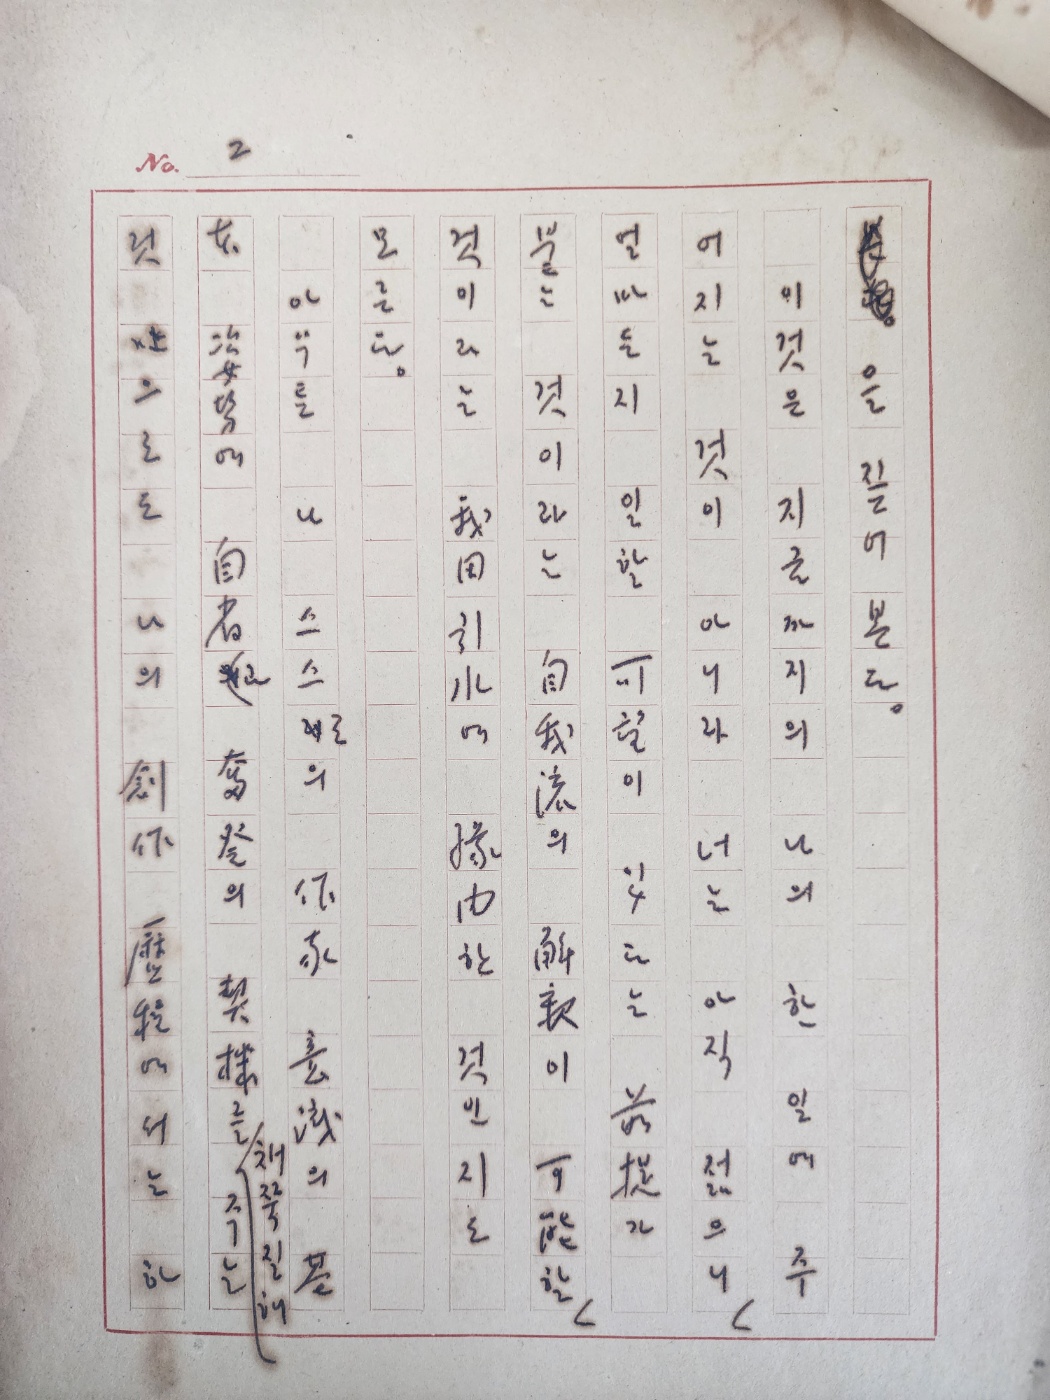 No. 2
을 짚어 본다.
이것은 지금까지의 나의 한 일에 주
어지는 것이 아니라 너는 아직 젊으니
얼마든지 일할 可望이 있다는 前提가
붙는 것이라는 自我流의 解釈이 可能할
것이라는 我田引水에 緣由한 것인지도
모른다.
아무튼 나 스스로의 作家 意識의 基
本 姿勢에 自省과 奮發의 契機를 채찍질해 주는
것만으로도 나의 創作 歷程에서는 한